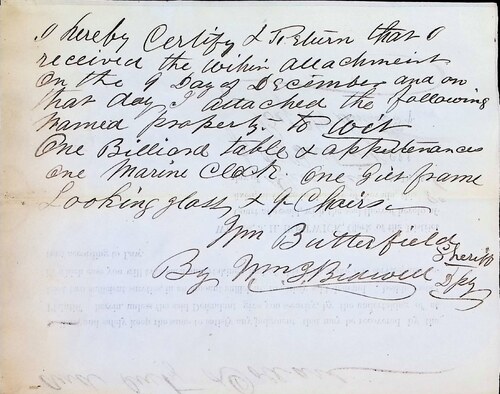 I hereby Certify & Return that I
received the within attachment
On the 9 Day of December and on
that day I attached the following
Named property to wit
One Billiard table & appertenances
One Marine Clock. one Giet frame
Looking glass, & 9 Chairs
Wm Butterfield Sheriff
By Wm J. Bidwell Dpy